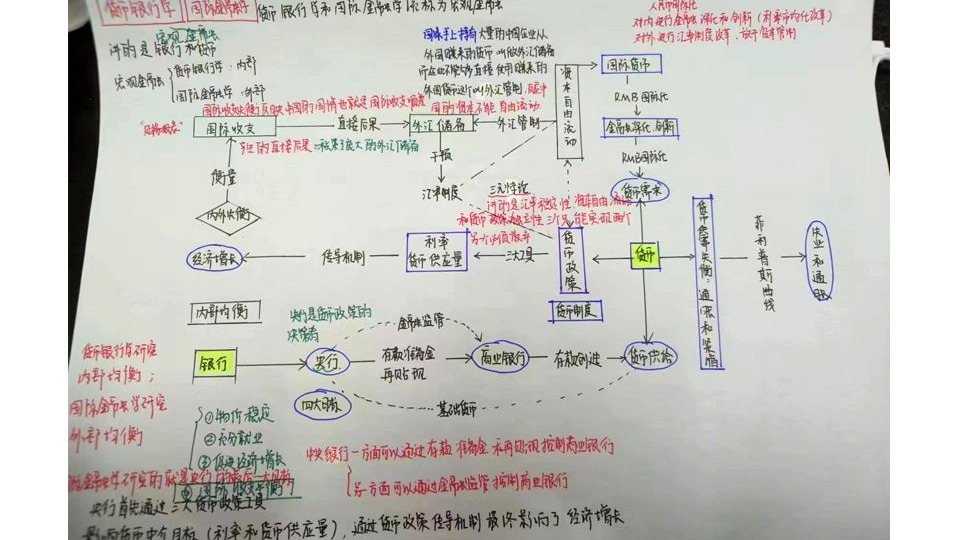 货币银行学 国际金融学 货币银行学和国际金融学称为宏观金融
宏观金融
讲的是银行和货币
宏观金融
货币银行学:内部
国际金融学:外部
国家手上持有大量的中国企业从
外国赚来的货币 叫做外汇储备
而企业不能大多直接使用赚来的
外国货币这个叫外汇管制,
国的资本不能自由流动
人民币国际化
对内进行金融深化和创新(利率市场化改革)
对外进行汇率制度改革、放松资本管制
国际收支
直接后果
外汇储备
外汇管制
资本自由流动
国际货币
RMB国际化
金融深化、创新
RMB国际化
货币需求
干预
汇率制度
三元悖论
讲的是汇率稳定性、资本自由流动
和货币政策独立性三个只能实现两个
另一个必须放弃
衡量
内外失衡
经济增长
传导机制
利率
货币供应量
三大工具
货币政策
货币
货币供需失衡:通涨和紧缩
菲利普斯曲线
失业和通胀
内部均衡
货币制度
央行是货币政策的
决策者
金融监管
银行
央行
存款准备金
再贴现
商业银行
存款创造
货币供给
四大目标
基础货币
货币银行学研究
内部均衡;
国际金融学研究
外部均衡
①物价稳定
②充分就业
③促进经济增长
④国际收支平衡
中央银行一方面可以通过存款准备金和再贴现控制商业银行
另一方面可以通过金融监管控制商业银行
央行首先通过三大货币政策工具
影响货币中介目标(利率和货币供应量),通过货币政策传导机制最终影响了经济增长